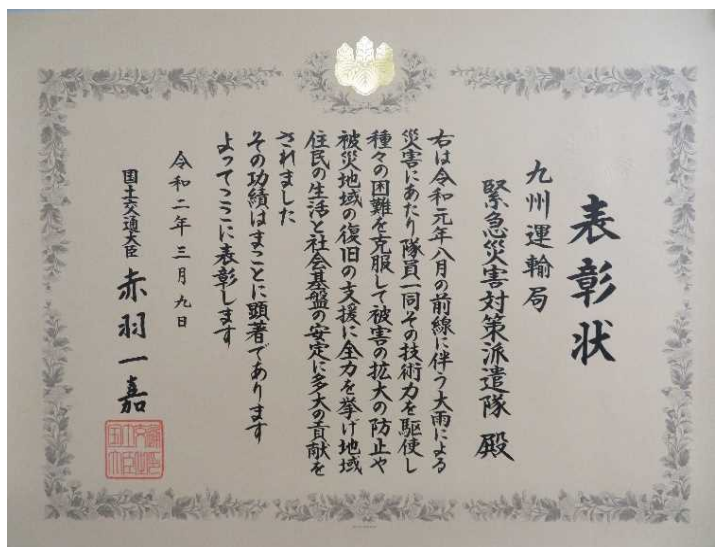 表彰状
九州運輸局
緊急災害対策派遣隊 殿
右は令和元年八月の前線に伴う大雨による
災害にあたり隊員一同その技術力を駆使し
種々の困難を克服して被害の拡大の防止や
被災地域の復旧の支援に全力を挙げ地域
住民の生活と社会基盤の安定に多大の貢献を
されました
その功績はまことに顕著であります
よってここに表彰します
令和二年三月九日
国土交通大臣 赤羽一嘉